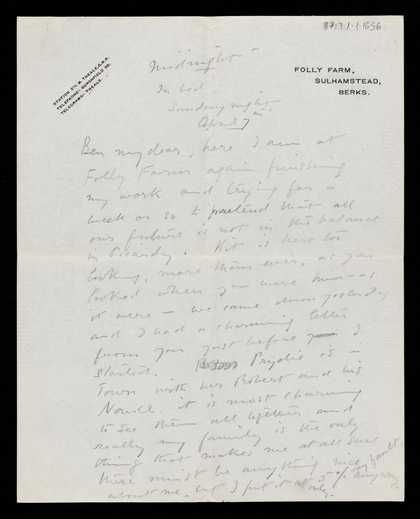 STATION STN. & THEALE, G.W.R.
TELEPHONE: BURGHFIELD
TELEGRAMS: THEALE.
FOLLY FARM,
SULHAMSTEAD,
BERKS.
"Midnight"
In bed
Sunday night.
April 7th
Ben my dear, here I am at
Folly Farm again finishing
my work and trying for a
week or so to pretend that all
our future is not in the balance
in Picardy. Kit is here too
looking, more than ever, as you
looked when you were
it were – we came down yesterday
and I had a charming letter
from you just before I
started. is in
Town with her Robert and his
it is most charming
to see them all together and
really my family is the only
thing that makes me at all sure
there must be anything nice
about me, but I put it at 5% anyway
only.